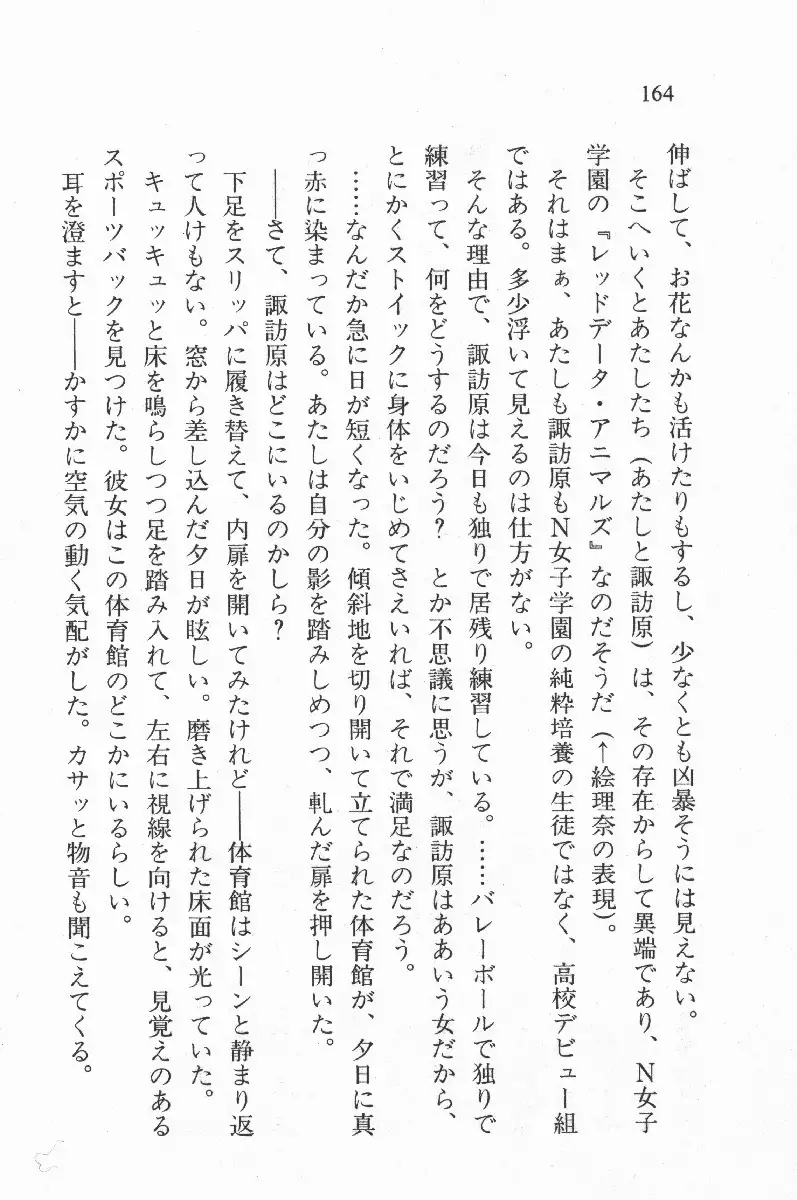 164
伸ばして、お花なんかも活けたりもするし、少なくとも凶暴そうには見えない。
そこへいくとあたしたち（あたしと諏訪原）は、その存在からして異端であり、Ｎ女子
学園の『レッドデータ・アニマルズ』なのだそうだ（↑絵理奈の表現）。
それはまぁ、あたしも諏訪原もＮ女子学園の純粋培養の生徒ではなく、高校デビュー組
ではある。多少浮いて見えるのは仕方がない。
そんな理由で、諏訪原は今日も独りで居残り練習している。……バレーボールで独りで
練習って、何をどうするのだろう？　とか不思議に思うが、諏訪原はああいう女だから、
とにかくストイックに身体をいじめてさえいれば、それで満足なのだろう。
……なんだか急に日が短くなった。傾斜地を切り開いて立てられた体育館が、夕日に真
っ赤に染まっている。あたしは自分の影を踏みしめつつ、軋んだ扉を押し開いた。
――さて、諏訪原はどこにいるのかしら？
下足をスリッパに履き替えて、内扉を開いてみたけれど――体育館はシーンと静まり返
って人けもない。窓から差し込んだ夕日が眩しい。磨き上げられた床面が光っていた。
キュッキュッと床を鳴らしつつ足を踏み入れて、左右に視線を向けると、見覚えのある
スポーツバックを見つけた。彼女はこの体育館のどこかにいるらしい。
耳を澄ますと――かすかに空気の動く気配がした。カサッと物音も聞こえてくる。